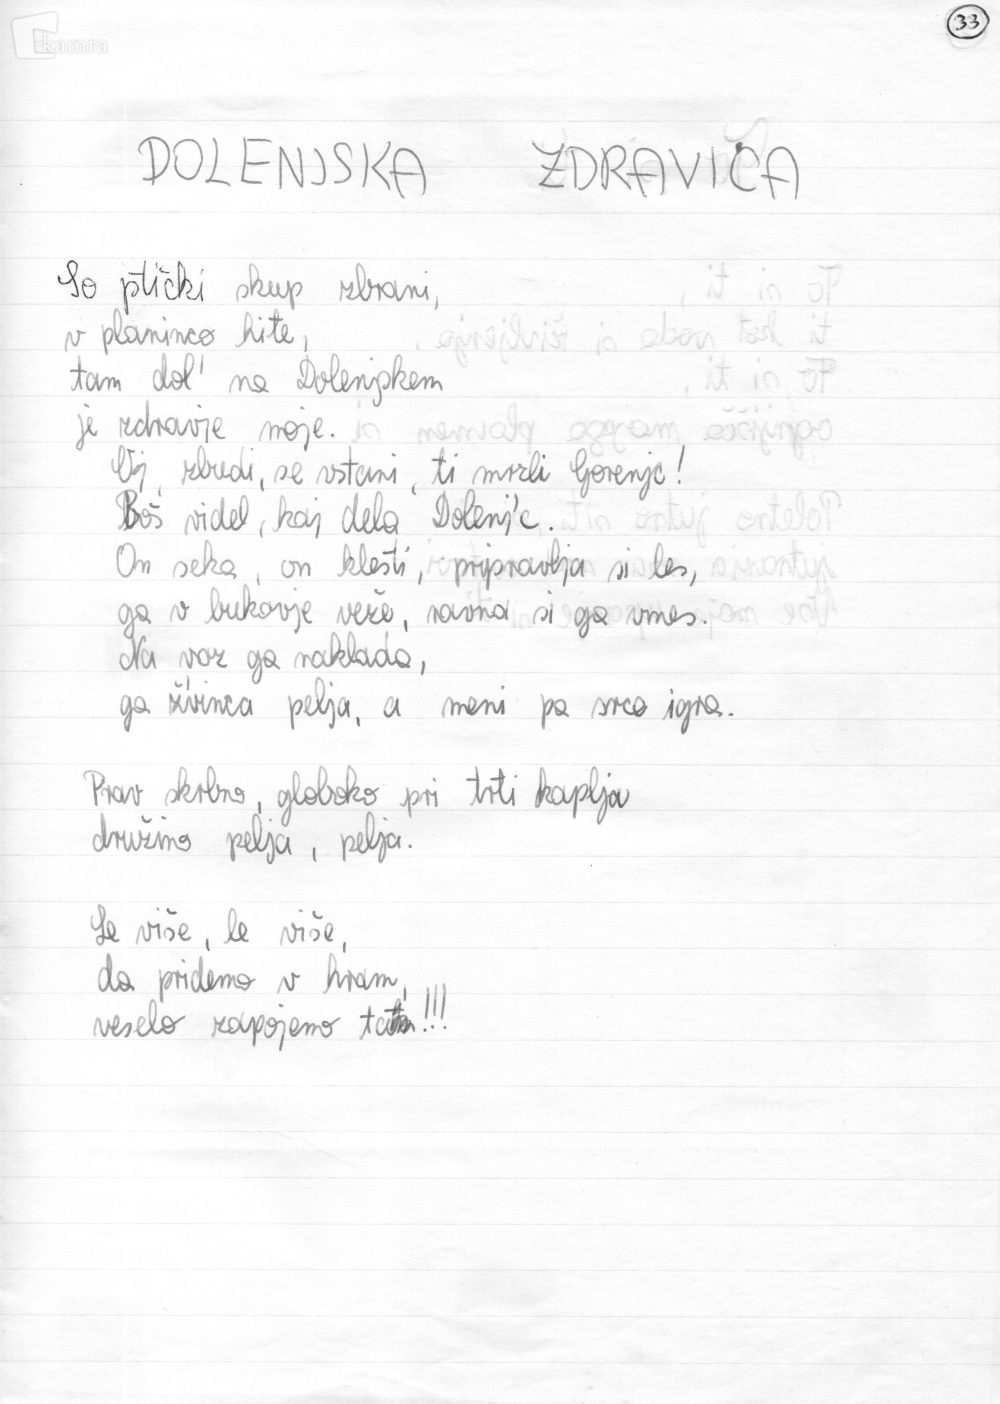 kamra
33
DOLENJSKA ZDRAVICA
So ptički skup zbrani,
v planinco hite,
tam dol' na Dolenjskem
je zdravje moje.
Oj, zbudi, se vstani, ti mrzli Gorenjc!
Boš videl, kaj dela Dolenj'c.
On seka, on klesti, pripravlja si les,
ga v bukovje veže, ravna si ga vmes.
Na voz ga naklada,
ga živinca pelja, a meni pa srce igra.
Prav skrbno, globoko pri trti kaplja
družino pelja, pelja.
Le više, le više,
da pridemo v hram,
veselo zapojemo tam!!!